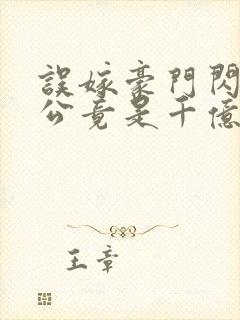 誤嫁豪門閃
公竟是千億
王章